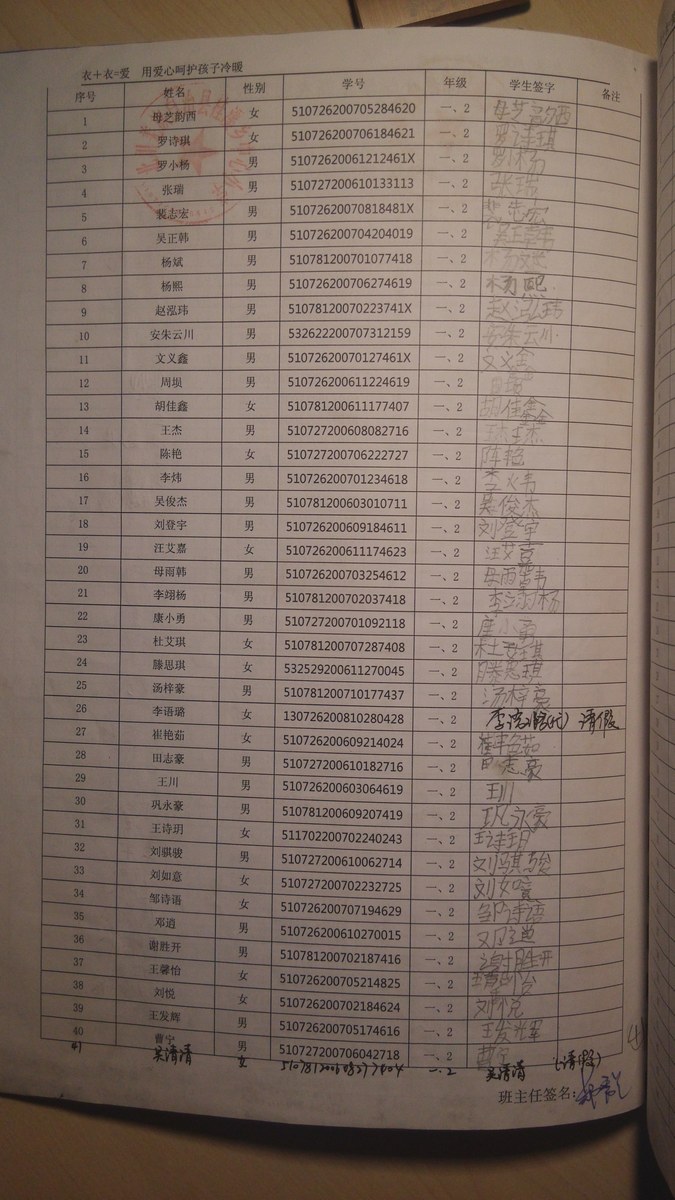 衣+衣=爱 用爱心呵护孩子冷暖
序号 姓名 性别 学号 年级 学生签字 备注
1 母芝韵西 女 510726200705284620 一、2 母芝韵西
2 罗诗琪 女 510726200706184621 一、2 罗诗琪
3 罗小杨 男 51072620061212461X 一、2
4 张瑞 男 510727200610133113 一、2 张瑞
5 裴志宏 男 51072620070818481X 一、2 裴志宏
6 吴正韩 男 510726200704204019 一、2 吴正韩
7 杨斌 男 510781200701077418 一、2
8 杨熙 男 510726200706274619 一、2 杨熙
9 赵泓玮 男 51078120070223741X 一、2 赵泓玮
10 安朱云川 男 532622200707312159 一、2 安朱云川
11 文义鑫 男 51072620070127461X 一、2
12 周坝 男 510726200611224619 一、2
13 胡佳鑫 女 510781200611177407 一、2 胡佳鑫
14 王杰 男 510727200608082716 一、2 王杰
15 陈艳 女 510727200706222727 一、2 陈艳
16 李炜 男 510726200701234618 一、2 李炜
17 吴俊杰 男 510781200603010711 一、2 吴俊杰
18 刘登宇 男 510726200609184611 一、2 刘登宇
19 汪艾嘉 女 510726200611174623 一、2 汪艾嘉
20 母雨韩 男 510726200703254612 一、2 母雨韩
21 李翊杨 男 510781200702037418 一、2 李翊杨
22 康小勇 男 510727200701092118 一、2 康小勇
23 杜艾琪 女 510781200707287408 一、2 杜艾琪
24 滕思琪 女 532529200611270045 一、2 滕思琪
25 汤梓豪 男 510781200710177437 一、2 汤梓豪
26 李语璐 女 130726200810280428 一、2 李语璐(代) 请假
27 崔艳茹 女 510726200609214024 一、2 崔艳茹
28 田志豪 男 510727200610182716 一、2 田志豪
29 王川 男 510726200603064619 一、2 王川
30 巩永豪 男 510781200609207419 一、2 巩永豪
31 王诗玥 女 511702200702240243 一、2 王诗玥
32 刘骐骏 男 510727200610062714 一、2 刘骐骏
33 刘如意 女 510727200702232725 一、2 刘如意
34 邹诗语 女 510726200707194629 一、2 邹诗语
35 邓逍 男 510726200610270015 一、2 邓逍
36 谢胜开 男 510781200702187416 一、2 谢胜开
37 王馨怡 女 510726200705214825 一、2 王馨怡
38 刘悦 女 510726200702184624 一、2 刘悦
39 王发辉 男 510726200705174616 一、2 王发辉
40 曹宁 男 510727200706042718 一、2 曹宁
41 吴清清 女 一.2 吴清清 (请假)
班主任签名: